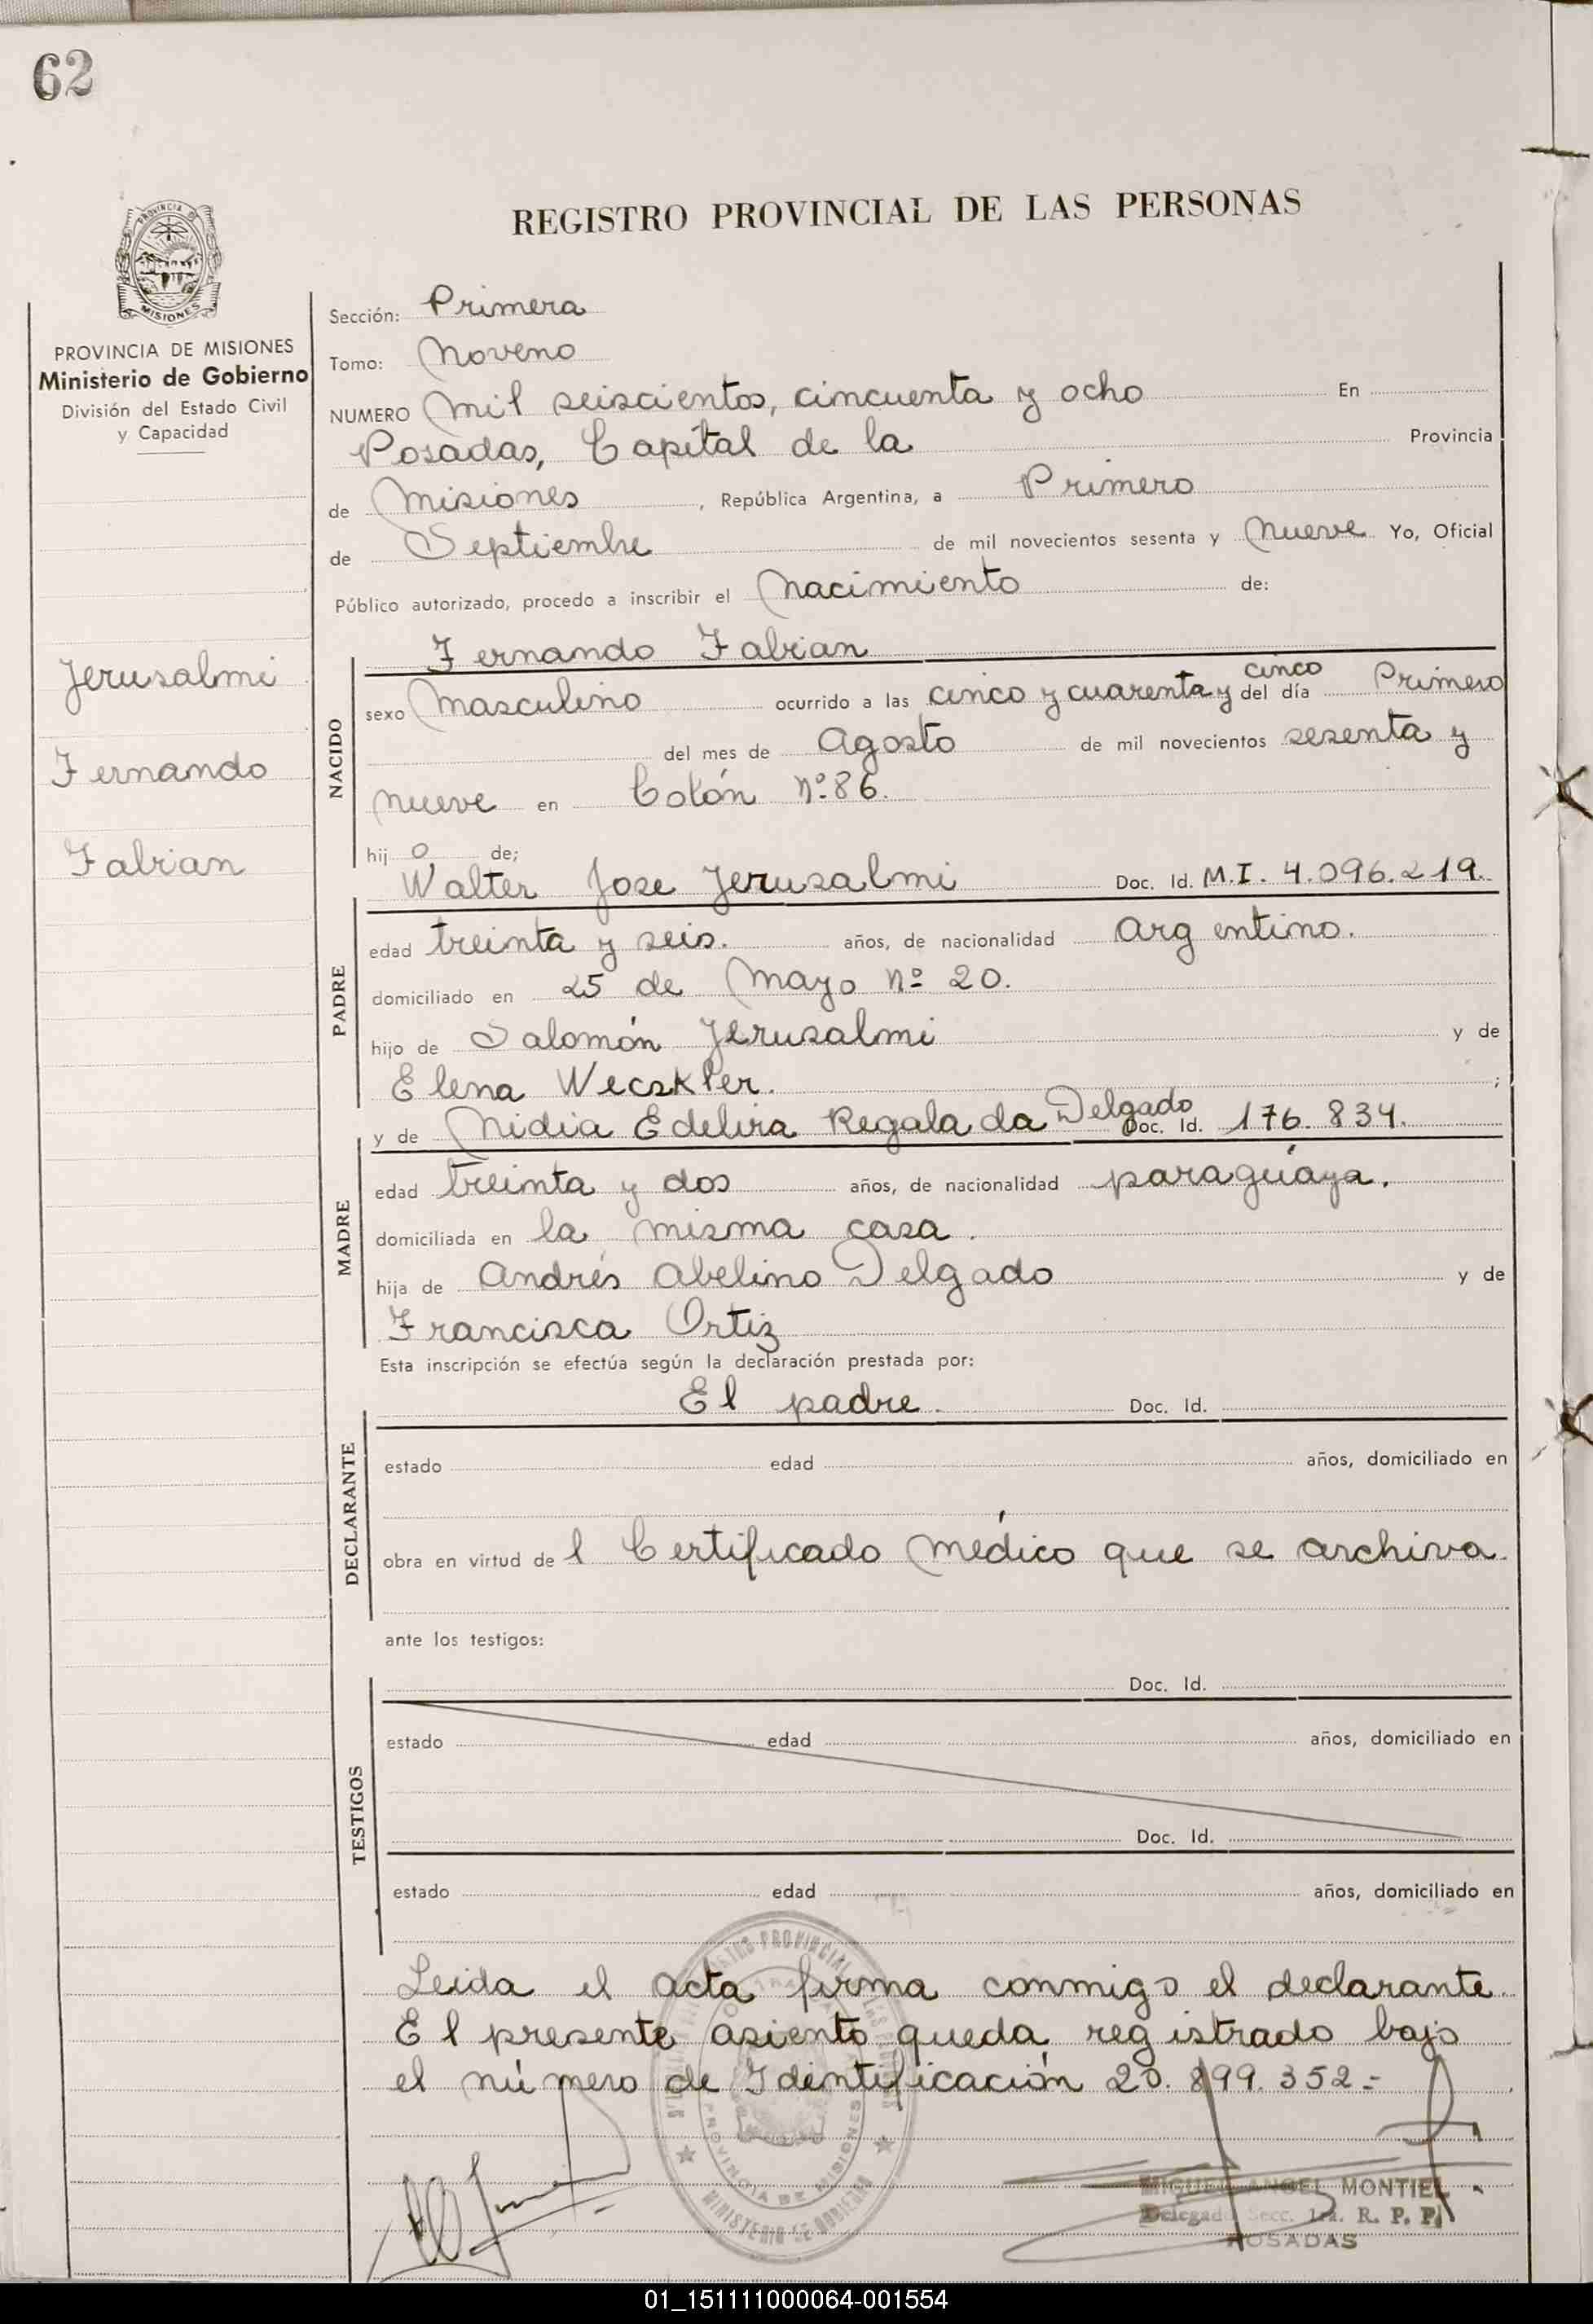 62
REGISTRO PROVINCIAL DE LAS PERSONAS
PROVINCIA DE
MISIONES
PROVINCIA DE MISIONES
Ministerio de Gobierno
División del Estado Civil
y Capacidad
Jerusalmi
Fernando
Fabian
Sección: Primera
Tomo: Noveno
NUMERO Mil seiscientos, cincuenta y ocho En
Posadas, Capital de la Provincia
de Misiones, República Argentina, a Primero
de Septiembre de mil novecientos sesenta y Nueve Yo, Oficial
Público autorizado, procedo a inscribir el Nacimiento de:
Fernando Fabian
NACIDO
sexo Masculino ocurrido a las cinco y cuarenta y cinco del día Primero
del mes de Agosto de mil novecientos sesenta y
nueve en Colón Nº 86.
hij o de;
Walter Jose Jerusalmi Doc. Id. M.I. 4.096.219.
PADRE
edad treinta y seis. años, de nacionalidad Argentino.
domiciliado en 25 de Mayo Nº 20.
hijo de Salomón Jerusalmi y de
Elena Weczkler. ;
y de Nidia Edelira Regalada Delgado Doc. Id. 176.834.
MADRE
edad treinta y dos años, de nacionalidad paraguáya.
domiciliada en la misma casa.
hija de Andrés Abelino Delgado y de
Francisca Ortiz
Esta inscripción se efectúa según la declaración prestada por:
El padre. Doc. Id.
DECLARANTE
estado edad años, domiciliado en
obra en virtud de l Certificado Médico que se archiva.
ante los testigos:
Doc. Id.
TESTIGOS
estado edad años, domiciliado en
Doc. Id.
estado edad años, domiciliado en
Leida el acta firma conmigo el declarante.
El presente asiento queda registrado bajo
el número de Identificación 20.899.352=
PROVINCIA DE MISIONES
MINISTERIO DE GOBIERNO
MIGUEL ANGEL MONTIEL
Delegado Secc. 1ra. R. P. P.
POSADAS
01_151111000064-001554